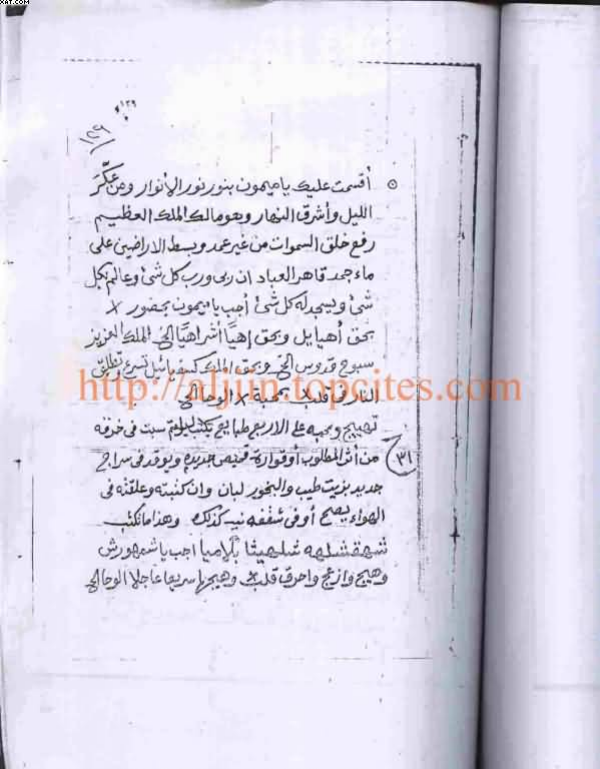 XAT.COM
١٢٩
١٢٩
أقسمت عليك يا ميمون بنور نور الأنوار ومن عكّر
الليل وأشرق النهار وهو مالك الملك العظيم
رفع خلق السموات من غير عمد وبسط الاراضين على
ماء جمد قاهر العباد ان ربى ورب كل شئ وعالم بكل
شئ ويسجد له كل شئ أجب يا ميمون بحضور X
بحق أهيايل وبحق إهياً أشراهياً الملك العزيز
سبوح قدوس وبحق الملك تسرع وتطلق
النار فى قلب X بمحبة X الوحا الخ
http://aljun.topcites.com
٣١
تهييج ومحبه على الاربع طبايع يكتب ليلة سبت فى خرقه
من أثر المطلوب أو قوارة قميص جديده ويوقد فى سراج
جديد بزيت طيب والبخور لبان وان كتبته وعلقته فى
الهواء يصح أو فى شقفه نيه كذلك وهذا ما تكتب
شهقشلهه شلهيثا اجب يا شمهورش
وهيج وازعج واحرق قلب X وهيجها سريعا عاجلا الوحا الخ